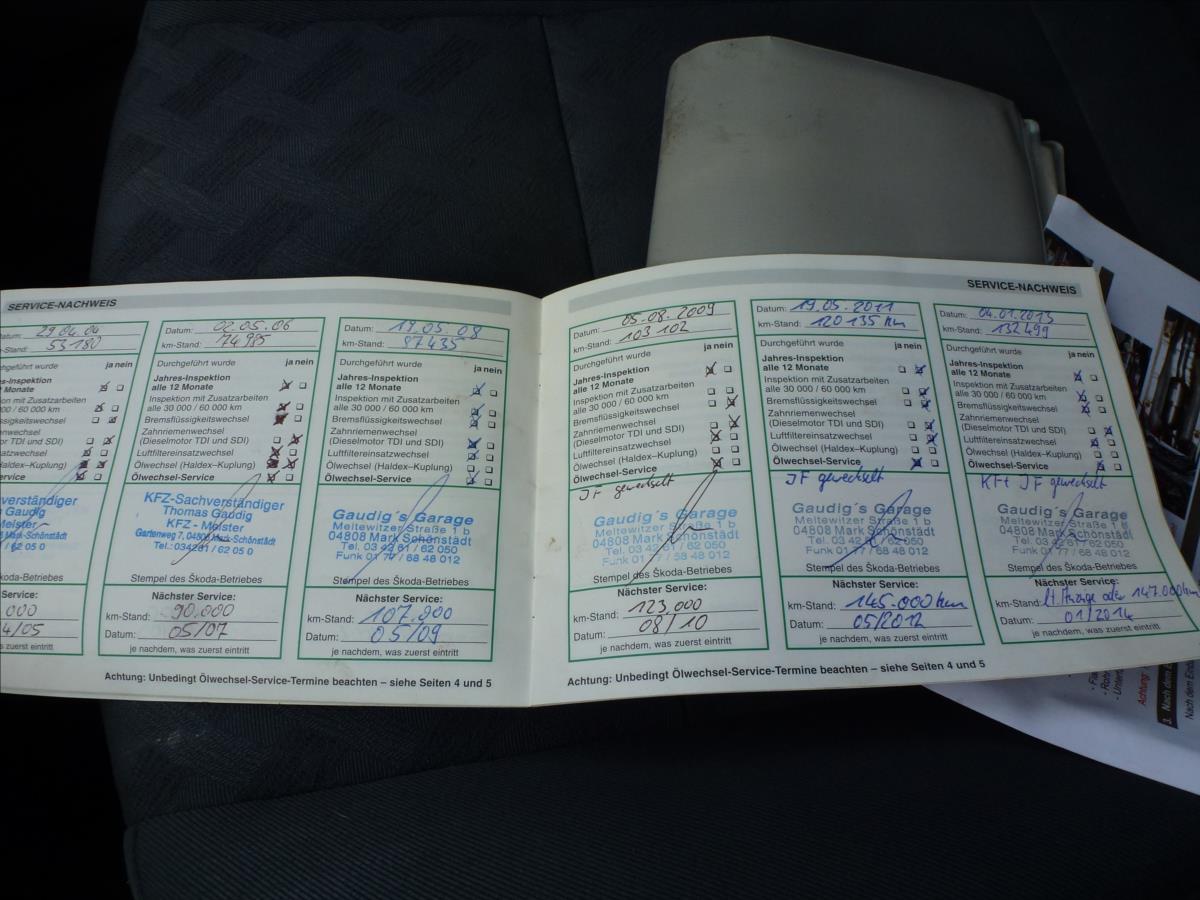 SERVICE-NACHWEIS
Datum: 29.04.04
-Stand: 53180
Durchgeführt wurde ja nein
s-Inspektion
Monate
ttion mit Zusatzarbeiten
00 / 60 000 km
üssigkeitswechsel
iemenwechsel
or TDI und SDI)
satzwechsel
Haldex–Kuplung)
Service
verständiger
Gaudig
Meister
koda-Betriebes
Service:
000
4/05
s zuerst eintritt
Datum: 02.05.06
km-Stand: 74985
Durchgeführt wurde ja nein
Jahres-Inspektion
alle 12 Monate
Inspektion mit Zusatzarbeiten
alle 30 000 / 60 000 km
Bremsflüssigkeitswechsel
Zahnriemenwechsel
(Dieselmotor TDI und SDI)
Luftfiltereinsatzwechsel
Ölwechsel (Haldex–Kuplung)
Ölwechsel-Service
KFZ-Sachverständiger
Thomas Gaudig
KFZ - Meister
Gartenweg 7, 04808 Mark-Schönstädt
Tel.: 034261 / 62 05 0
Stempel des Škoda-Betriebes
Nächster Service:
km-Stand: 90.000
Datum: 05/07
je nachdem, was zuerst eintritt
Datum: 19.05.08
km-Stand: 87435
Durchgeführt wurde ja nein
Jahres-Inspektion
alle 12 Monate
Inspektion mit Zusatzarbeiten
alle 30 000 / 60 000 km
Bremsflüssigkeitswechsel
Zahnriemenwechsel
(Dieselmotor TDI und SDI)
Luftfiltereinsatzwechsel
Ölwechsel (Haldex–Kuplung)
Ölwechsel-Service
Gaudig´s Garage
Meltewitzer Straße 1 b
04808 Mark Schönstädt
Tel. 03 42 61 / 62 050
Funk 01 77 / 68 48 012
Stempel des Škoda-Betriebes
Nächster Service:
km-Stand: 107.000
Datum: 05/09
je nachdem, was zuerst eintritt
Achtung: Unbedingt Ölwechsel-Service-Termine beachten – siehe Seiten 4 und 5
SERVICE-NACHWEIS
Datum: 05.08.2009
km-Stand: 103102
Durchgeführt wurde ja nein
Jahres-Inspektion
alle 12 Monate
Inspektion mit Zusatzarbeiten
alle 30 000 / 60 000 km
Bremsflüssigkeitswechsel
Zahnriemenwechsel
(Dieselmotor TDI und SDI)
Luftfiltereinsatzwechsel
Ölwechsel (Haldex–Kuplung)
Ölwechsel-Service
JF gewechselt
Gaudig´s Garage
Meltewitzer Straße 1 b
04808 Mark Schönstädt
Tel. 03 42 61 / 62 050
Funk 01 77 / 68 48 012
Stempel des Škoda-Betriebes
Nächster Service:
km-Stand: 123.000
Datum: 08/10
je nachdem, was zuerst eintritt
Datum: 19.05.2011
km-Stand: 120135 km
Durchgeführt wurde ja nein
Jahres-Inspektion
alle 12 Monate
Inspektion mit Zusatzarbeiten
alle 30 000 / 60 000 km
Bremsflüssigkeitswechsel
Zahnriemenwechsel
(Dieselmotor TDI und SDI)
Luftfiltereinsatzwechsel
Ölwechsel (Haldex–Kuplung)
Ölwechsel-Service
JF gewechselt
Gaudig´s Garage
Meltewitzer Straße 1 b
04808 Mark Schönstädt
Tel. 03 42 61 / 62 050
Funk 01 77 / 68 48 012
Stempel des Škoda-Betriebes
Nächster Service:
km-Stand: 145.000km
Datum: 05/2012
je nachdem, was zuerst eintritt
Datum: 04.01.2013
km-Stand: 132499
Durchgeführt wurde ja nein
Jahres-Inspektion
alle 12 Monate
Inspektion mit Zusatzarbeiten
alle 30 000 / 60 000 km
Bremsflüssigkeitswechsel
Zahnriemenwechsel
(Dieselmotor TDI und SDI)
Luftfiltereinsatzwechsel
Ölwechsel (Haldex–Kuplung)
Ölwechsel-Service
Kft JF gewechselt
Gaudig´s Garage
Meltewitzer Straße 1 b
04808 Mark Schönstädt
Tel. 03 42 61 / 62 050
Funk 01 77 / 68 48 012
Stempel des Škoda-Betriebes
Nächster Service:
km-Stand: lt. Anzeige oder 147.000km
Datum: 01/2014
je nachdem, was zuerst eintritt
Achtung: Unbedingt Ölwechsel-Service-Termine beachten – siehe Seiten 4 und 5
Achtung
3. Nach dem